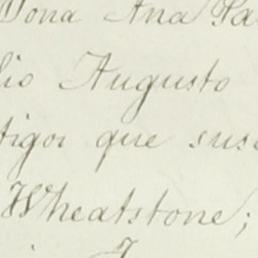 Dona Ana Pa
lio Augusto
tigos que sus
Wheatstone;